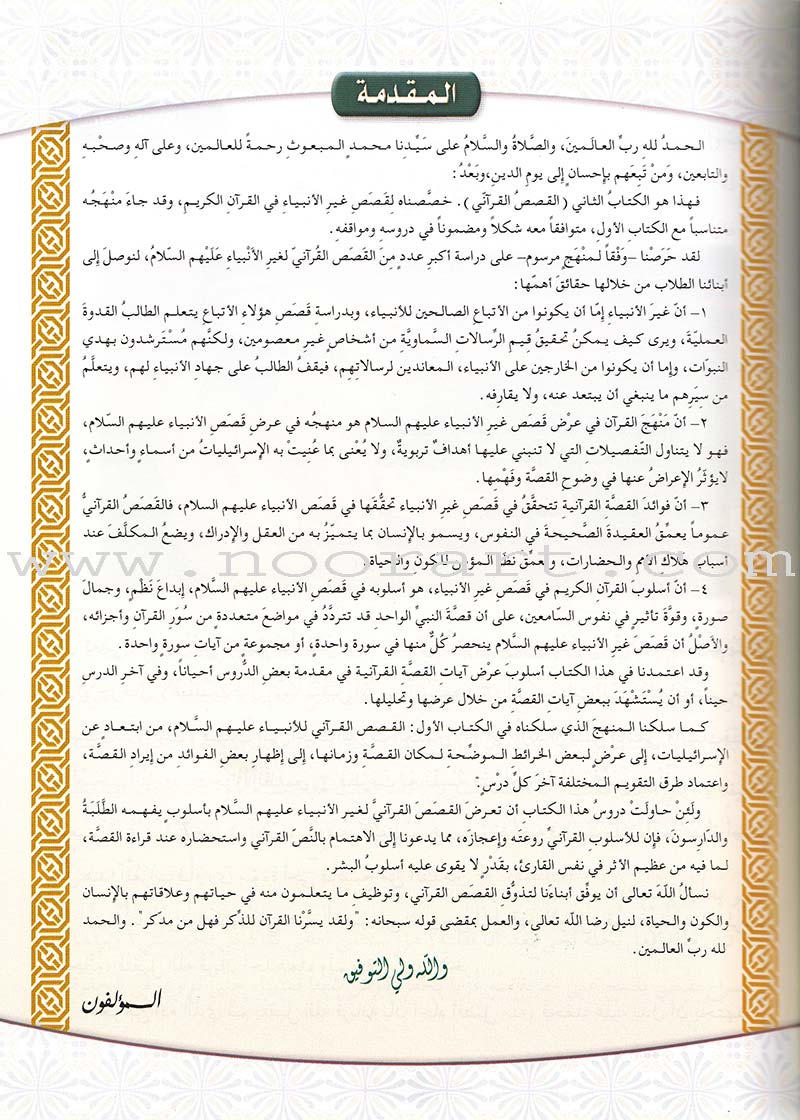 المقدمة
الحمدُ للهِ ربِّ العالَمينَ، والصَّلاةُ والسَّلامُ على سَيِّدِنا محمدٍ المبعوثِ رحمةً للعالمين، وعلى آلهِ وصحْبِهِ
والتابعين، ومَنْ تَبِعَهم بإحسانٍ إلى يومِ الدينِ،وبَعْدُ:
فهذا هو الكتابُ الثاني (القصصُ القرآنّي). خصَّصناه لقَصَصِ غيرِ الأنبياءِ في القرآنِ الكريمِ، وقد جاءَ منْهَجُه
متناسباً مع الكتابِ الأولِ، متوافقاً معه شكلاً ومضموناً في دروسِه ومواقفِه.
لقد حَرَصْنا –وَفْقاً لمنْهَجٍ مرسومٍ– على دراسة أكبرِ عددٍ مِنَ القَصَصِ القُرآنيِّ لغيرِ الأنْبياءِ عَلَيْهم السَّلامُ، لنوصلَ إلى
أبنائنا الطلاب من خلالها حقائقَ أهمّها:
١– أنّ غيرَ الأنبياءِ إمّا أن يكونوا من الأتباعِ الصالحين للأنبياء، وبدراسةِ قَصَصِ هؤلاءِ الأتباعِ يتعلم الطالبُ القدوةَ
العمليَّةَ، ويرى كيف يمكنُ تحقيقُ قيمِ الرِّسالاتِ السَّماويَّةِ من أشخاصٍ غيرِ معصومين، ولكنَّهم مُسْتَرشدون بهدي
النبوّات، وإما أن يكونوا من الخارجين على الأنبياء، المعاندين لرسالاتِهِم، فيقفُ الطالبُ على جهادِ الأنبياءِ لهم، ويتعلَّمُ
من سِيَرِهم ما ينبغي أن يبتعد عنه، ولا يقارفه.
٢– أنّ مَنْهَجَ القرآن في عرْضِ قَصَصِ غيرِ الأنبياء عليهم السلام هو منهجُه في عرضِ قَصَصِ الأنبياء عليهم السّلام،
فهو لا يتناول التّفصيلات التي لا تنبني عليها أهدافٌ تربويةٌ، ولا يُعْنى بما عُنِيَتْ به الإسرائيلياتُ من أسماءٍ وأحداثٍ،
لايؤثّرُ الإعراضُ عنها في وضوحِ القصَّة وفَهْمِها.
٣– أنّ فوائدَ القصَّة القرآنية تتحقَّقُ في قَصَصِ غيرِ الأنبياء تحقُّقَها في قَصَصِ الأنبياء عليهم السلام، فالقَصَصُ القرآنيُّ
عموماً يعمِّقُ العقيدةَ الصَّحيحةَ في النفوس، ويسمو بالإنسان بما يتميّزُ به من العقلِ والإدراك، ويضعُ المكلَّفَ عند
أسبابِ هلاكِ الأممِ والحضارات، ويعمّقُ نظرَ المؤمنِ للكونِ والحياة.
٤– أنّ أسلوبَ القرآنِ الكريمِ في قَصَصِ غيرِ الأنبياء، هو أسلوبه في قَصَصِ الأنبياء عليهم السَّلام، إبداعَ نَظْمٍ، وجمالَ
صورةٍ، وقوَّةَ تأثيرٍ في نفوس السّامعين، على أن قصَّةَ النبيِّ الواحدِ قد تتردَّدُ في مواضعَ متعددةٍ من سُوَرِ القرآنِ وأجزائه،
والأصْلُ أن قَصَصَ غيرِ الأنبياء عليهم السَّلام ينحصرُ كُلٌّ منها في سورة واحدة، أو مجموعةٍ من آياتِ سورةٍ واحدة.
وقد اعتمدنا في هذا الكتاب أسلوبَ عرْض آياتِ القصَّة القرآنية في مقدمة بعض الدُّروس أحياناً، وفي آخرِ الدرسِ
حيناً، أو أن يُسْتشْهَدَ ببعضِ آياتِ القصَّة من خلال عرضها وتحليلها.
كما سلكنا المنهجَ الذي سلكناه في الكتاب الأول: القصص القرآني للأنبياء عليهم السَّلام، من ابتعادٍ عن
الإسرائيليات، إلى عرْضٍ لبعض الخرائط الموضّحة لمكان القصَّة وزمانها، إلى إظهارِ بعضِ الفوائد من إيرادِ القصَّة،
واعتمادِ طرق التقويم المختلفة آخرَ كلِّ درْسٍ.
ولَئِنْ حاولَتْ دروسُ هذا الكتابِ أن تعرضَ القصَصَ القرآنيَّ لغير الأنبياء عليهم السَّلام بأسلوبٍ يفهمه الطَّلَبَةُ
والدَّارِسونَ، فإن للأسلوبِ القرآنيِّ روعتَه وإعجازَه، مما يدعونا إلى الاهتمام بالنَّصّ القرآني واستحضاره عند قراءة القصَّة،
لما فيه من عظيم الأثر في نفس القارئ، بقَدْرٍ لا يقوى عليه أسلوبُ البشر.
نسألُ اللّهَ تعالى أن يوفّق أبناءَنا لتذوُّقِ القصَصِ القرآني، وتوظيفِ ما يتعلمون منه في حياتهم وعلاقاتهم بالإنسان
والكون والحياة، لنيل رضا اللّه تعالى، والعمل بمقضى قوله سبحانه: "ولقد يسَّرْنا القرآن للذِّكر فهل من مدّكر". والحمد
لله ربِّ العالمين.
والله ولي التوفيق
المؤلفون
www.noorart.com